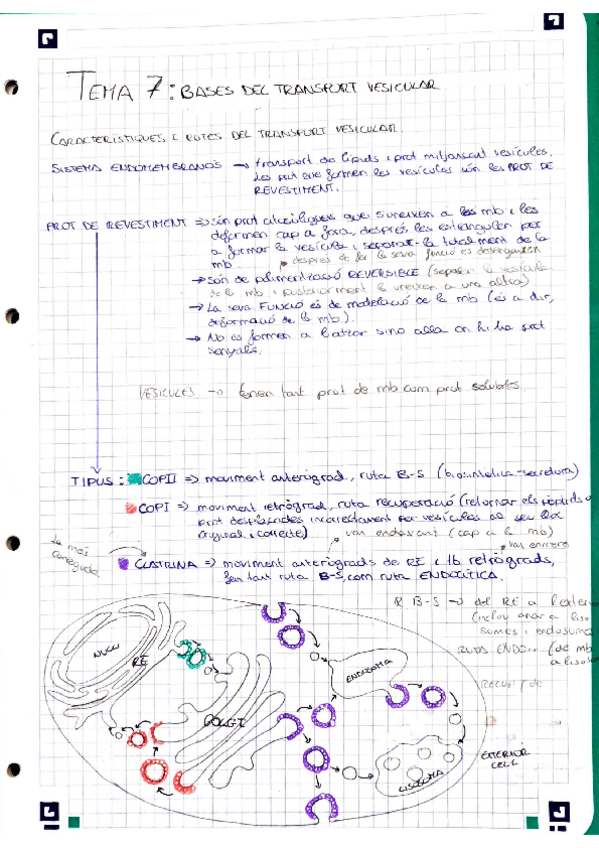 TEMA 7: BASES DEL TRANSPORT VESICULAR
CARACTERÍSTIQUES I RUTES DEL TRANSPORT VESICULAR.
SISTEMA ENDOMEMBRANÓS → transport de lípids i prot mitjançant vesícules.
Les prot que formen les vesícules són les PROT DE
REVESTIMENT.
PROT DE REVESTIMENT => són prot que s'uneixen a les mb i les
deformen cap a fora, després les estrangulen per
a formar la vesícula i separar-la totalment de la
mb.
després de fer la seva funció es desenganxen
→ Són de polimerització REVERSIBLE (separen la vesícula
de la mb i posteriorment la uneixen a una altra)
→ La seva FUNCIÓ és de modelació de la mb (és a dir,
deformació de la mb).
→ No es formen a l'atzar sino alla on hi ha prot
senyals.
VESÍCULES → tenen tant prot de mb com prot solubles
TIPUS: COPII => moviment anterògrad, ruta B-S (biosintètica-secretora)
COPI => moviment retrògrad, ruta recuperació (retornar els lípids o
prot desplaçades incorrectament per vesícules al seu lloc
original i correcte)
van endavant (cap a la mb)
van enrere
la més
coneguda
CLATRINA => moviment anterògrads de RE i tb retrògrads,
fan tant ruta B-S, com ruta ENDOCÍTICA.
R B-S → del RE a l'exterior
(inclou anar a liso
somes i endosomes
RUTA ENDO.. (de mb
a lisoso
RECUP
NUCLI
RE
GOLGI
ENDOSOMA
LISOSOMA
EXTERIOR
CELL